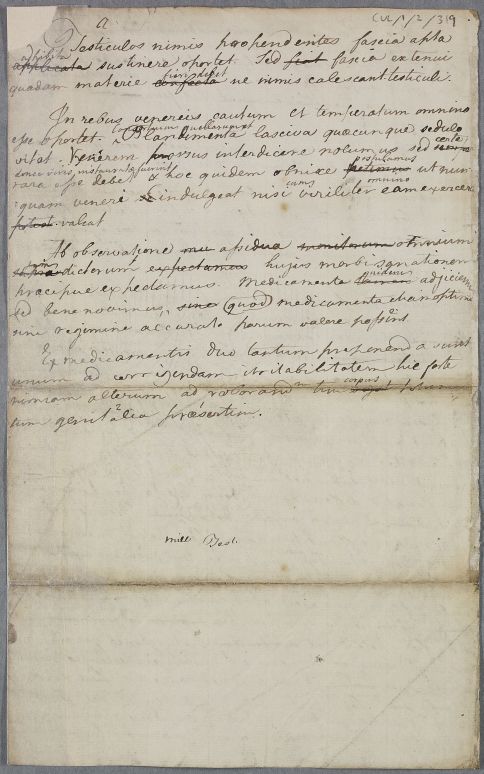 CUL/1/2/319
a
Testiculos nimis propendentes fascia apta
adhibita
applicata sustinere oportet. Sed fiat fascia ex tenui
quadam materie confecta ne nimis calescant testiculi.
In rebus venereis cautum et temperatum omnino
esse oportet. Blandimenta lasciva quaecunque sedulo
certe
vitat. Venerem prorsus interdicere nolumus sed
donec vires instauratae fuerint postulamus
rara esse debet, & hoc quidem obnixe petimus ut nun-
omnino
quam venere indulgeat nisi cum viriliter eam exercere
potest valeat
Ab observatione assidua monitorum omnium
supradictorum expectamus hujus morbi sanationem
praecipue expectamus. Medicamenta tamen adjiciemus
sed bene novimus, sine (quod) medicamenta etiam optima
sine regimine accurato parum valere possint
Ex medicamentis duo tantum proponenda sunt
unum ad corrigendam irritabilitatem hic forte
corpus
nimiam alterum ad roborandm tum
tum genitalia praesertim.
mill